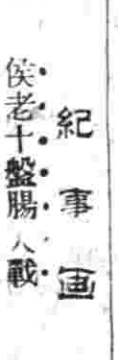 紀事画
侯老十盤腸大戰